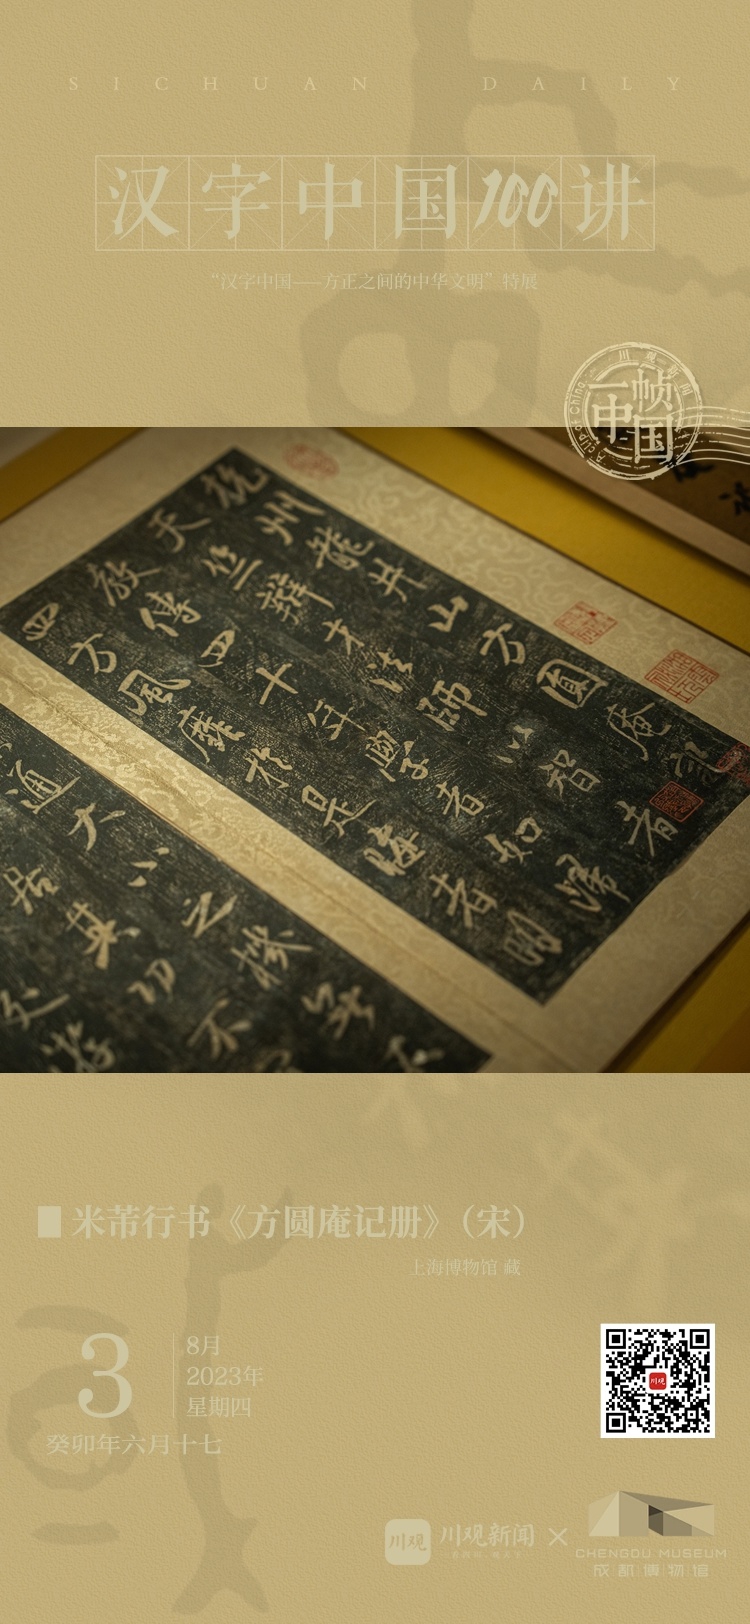 SICHUAN DAILY
汉字中国100讲
“汉字中国——方正之间的中华文明”特展
川观新闻
一帧
中国
A clip of China
杭州龍井山方圓庵記
天竺辯才法師以智者
教傳四十年學者如歸
四方風靡於是者明
通大小之機無不
居其功不
米芾行书《方圆庵记册》（宋）
上海博物馆 藏
3
8月
2023年
星期四
癸卯年六月十七
川观
川观
川观新闻
×
CHENGDU MUSEUM
成都博物馆